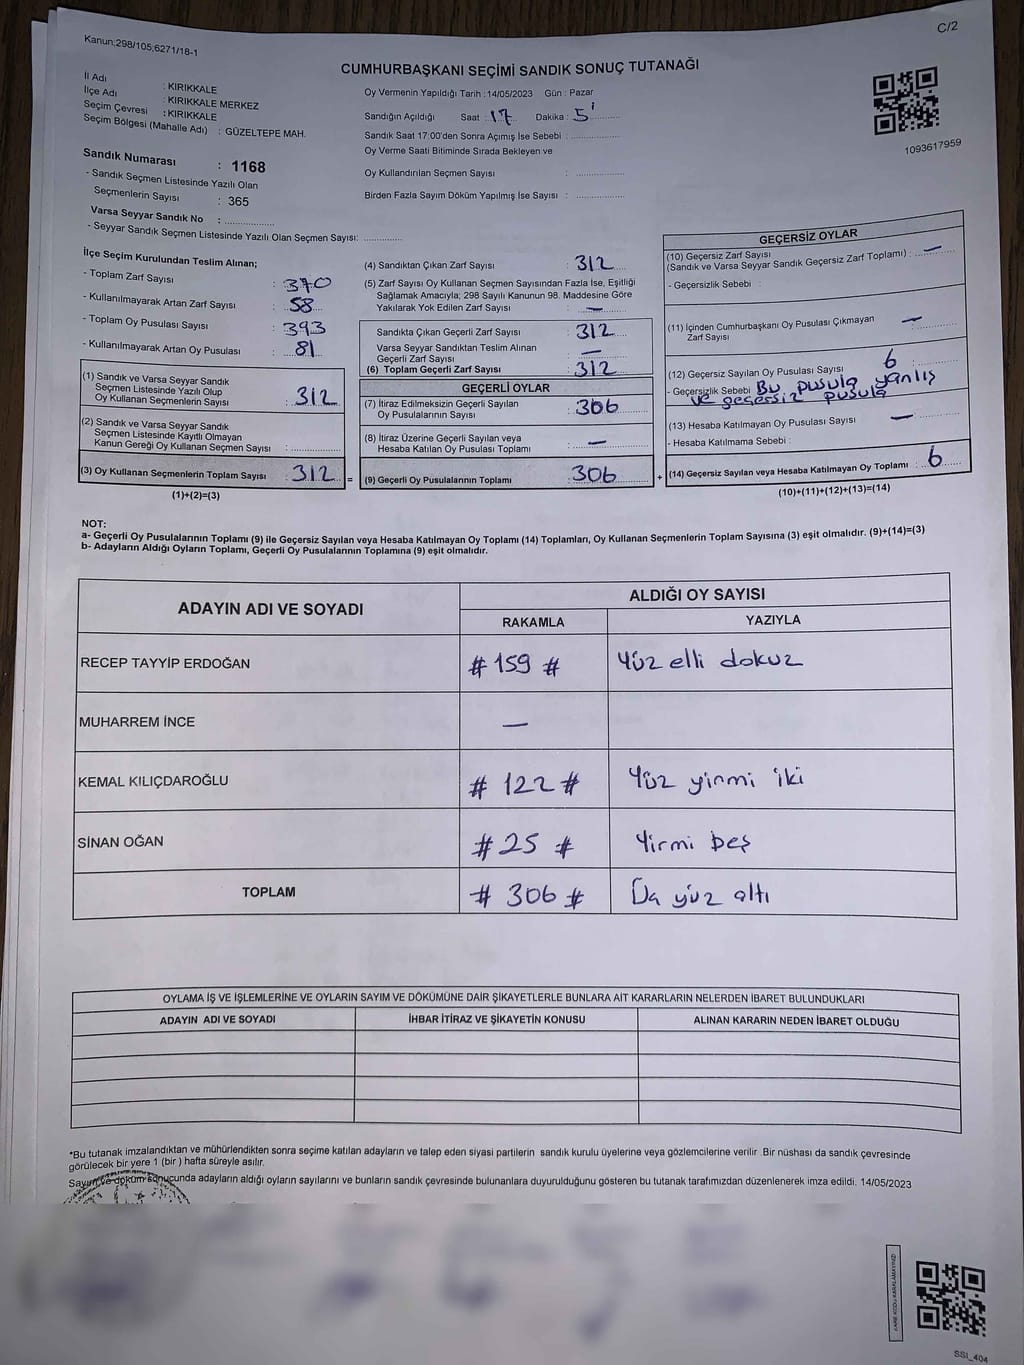 C/2
Kanun;298/105;6271/18-1
CUMHURBAŞKANI SEÇİMİ SANDIK SONUÇ TUTANAĞI
İl Adı : KIRIKKALE
İlçe Adı : KIRIKKALE MERKEZ
Seçim Çevresi : KIRIKKALE
Seçim Bölgesi (Mahalle Adı) : GÜZELTEPE MAH.
Sandık Numarası : 1168
- Sandık Seçmen Listesinde Yazılı Olan
Seçmenlerin Sayısı : 365
Varsa Seyyar Sandık No :
- Seyyar Sandık Seçmen Listesinde Yazılı Olan Seçmen Sayısı:
Oy Vermenin Yapıldığı Tarih :14/05/2023 Gün : Pazar
Sandığın Açıldığı Saat : 17 Dakika : 5'
Sandık Saat 17:00'den Sonra Açımış İse Sebebi :
Oy Verme Saati Bitiminde Sırada Bekleyen ve
Oy Kullandırılan Seçmen Sayısı :
Birden Fazla Sayım Döküm Yapılmış İse Sayısı :
1093617959
İlçe Seçim Kurulundan Teslim Alınan;
- Toplam Zarf Sayısı : 370
- Kullanılmayarak Artan Zarf Sayısı : 58
- Toplam Oy Pusulası Sayısı : 393
- Kullanılmayarak Artan Oy Pusulası : 81
(1) Sandık ve Varsa Seyyar Sandık
Seçmen Listesinde Yazılı Olup
Oy Kullanan Seçmenlerin Sayısı : 312
(2) Sandık ve Varsa Seyyar Sandık
Seçmen Listesinde Kayıtlı Olmayan
Kanun Gereği Oy Kullanan Seçmen Sayısı :
(3) Oy Kullanan Seçmenlerin Toplam Sayısı : 312 =
(1)+(2)=(3)
(4) Sandıktan Çıkan Zarf Sayısı 312
(5) Zarf Sayısı Oy Kullanan Seçmen Sayısından Fazla İse, Eşitliği
Sağlamak Amacıyla; 298 Sayılı Kanunun 98. Maddesine Göre
Yakılarak Yok Edilen Zarf Sayısı : —
Sandıkta Çıkan Geçerli Zarf Sayısı : 312
Varsa Seyyar Sandıktan Teslim Alınan
Geçerli Zarf Sayısı : —
(6) Toplam Geçerli Zarf Sayısı : 312
GEÇERLİ OYLAR
(7) İtiraz Edilmeksizin Geçerli Sayılan
Oy Pusulalarının Sayısı : 306
(8) İtiraz Üzerine Geçerli Sayılan veya
Hesaba Katılan Oy Pusulası Toplamı : —
(9) Geçerli Oy Pusulalarının Toplamı 306 +
GEÇERSİZ OYLAR
(10) Geçersiz Zarf Sayısı
(Sandık ve Varsa Seyyar Sandık Geçersiz Zarf Toplamı) : —
- Geçersizlik Sebebi :
(11) İçinden Cumhurbaşkanı Oy Pusulası Çıkmayan
Zarf Sayısı : —
(12) Geçersiz Sayılan Oy Pusulası Sayısı : 6
- Geçersizlik Sebebi Bu pusula yanlış
ve geçersiz pusula
(13) Hesaba Katılmayan Oy Pusulası Sayısı : —
- Hesaba Katılmama Sebebi :
(14) Geçersiz Sayılan veya Hesaba Katılmayan Oy Toplamı : 6
(10)+(11)+(12)+(13)=(14)
NOT:
a- Geçerli Oy Pusulalarının Toplamı (9) ile Geçersiz Sayılan veya Hesaba Katılmayan Oy Toplamı (14) Toplamları, Oy Kullanan Seçmenlerin Toplam Sayısına (3) eşit olmalıdır. (9)+(14)=(3)
b- Adayların Aldığı Oyların Toplamı, Geçerli Oy Pusulalarının Toplamına (9) eşit olmalıdır.
ADAYIN ADI VE SOYADI ALDIĞI OY SAYISI
RAKAMLA YAZIYLA
RECEP TAYYİP ERDOĞAN # 159 # Yüz elli dokuz
MUHARREM İNCE —
KEMAL KILIÇDAROĞLU # 122 # Yüz yirmi iki
SİNAN OĞAN # 25 # Yirmi beş
TOPLAM # 306 # yüz altı
OYLAMA İŞ VE İŞLEMLERİNE VE OYLARIN SAYIM VE DÖKÜMÜNE DAİR ŞİKAYETLERLE BUNLARA AİT KARARLARIN NELERDEN İBARET BULUNDUKLARI
ADAYIN ADI VE SOYADI İHBAR İTİRAZ VE ŞİKAYETİN KONUSU ALINAN KARARIN NEDEN İBARET OLDUĞU
*Bu tutanak imzalandıktan ve mühürlendikten sonra seçime katılan adayların ve talep eden siyasi partilerin sandık kurulu üyelerine veya gözlemcilerine verilir .Bir nüshası da sandık çevresinde
görülecek bir yere 1 (bir ) hafta süreyle asılır.
Sayım ve döküm sonucunda adayların aldığı oyların sayılarını ve bunların sandık çevresinde bulunanlara duyurulduğunu gösteren bu tutanak tarafımızdan düzenlenerek imza edildi. 14/05/2023
SSI_404